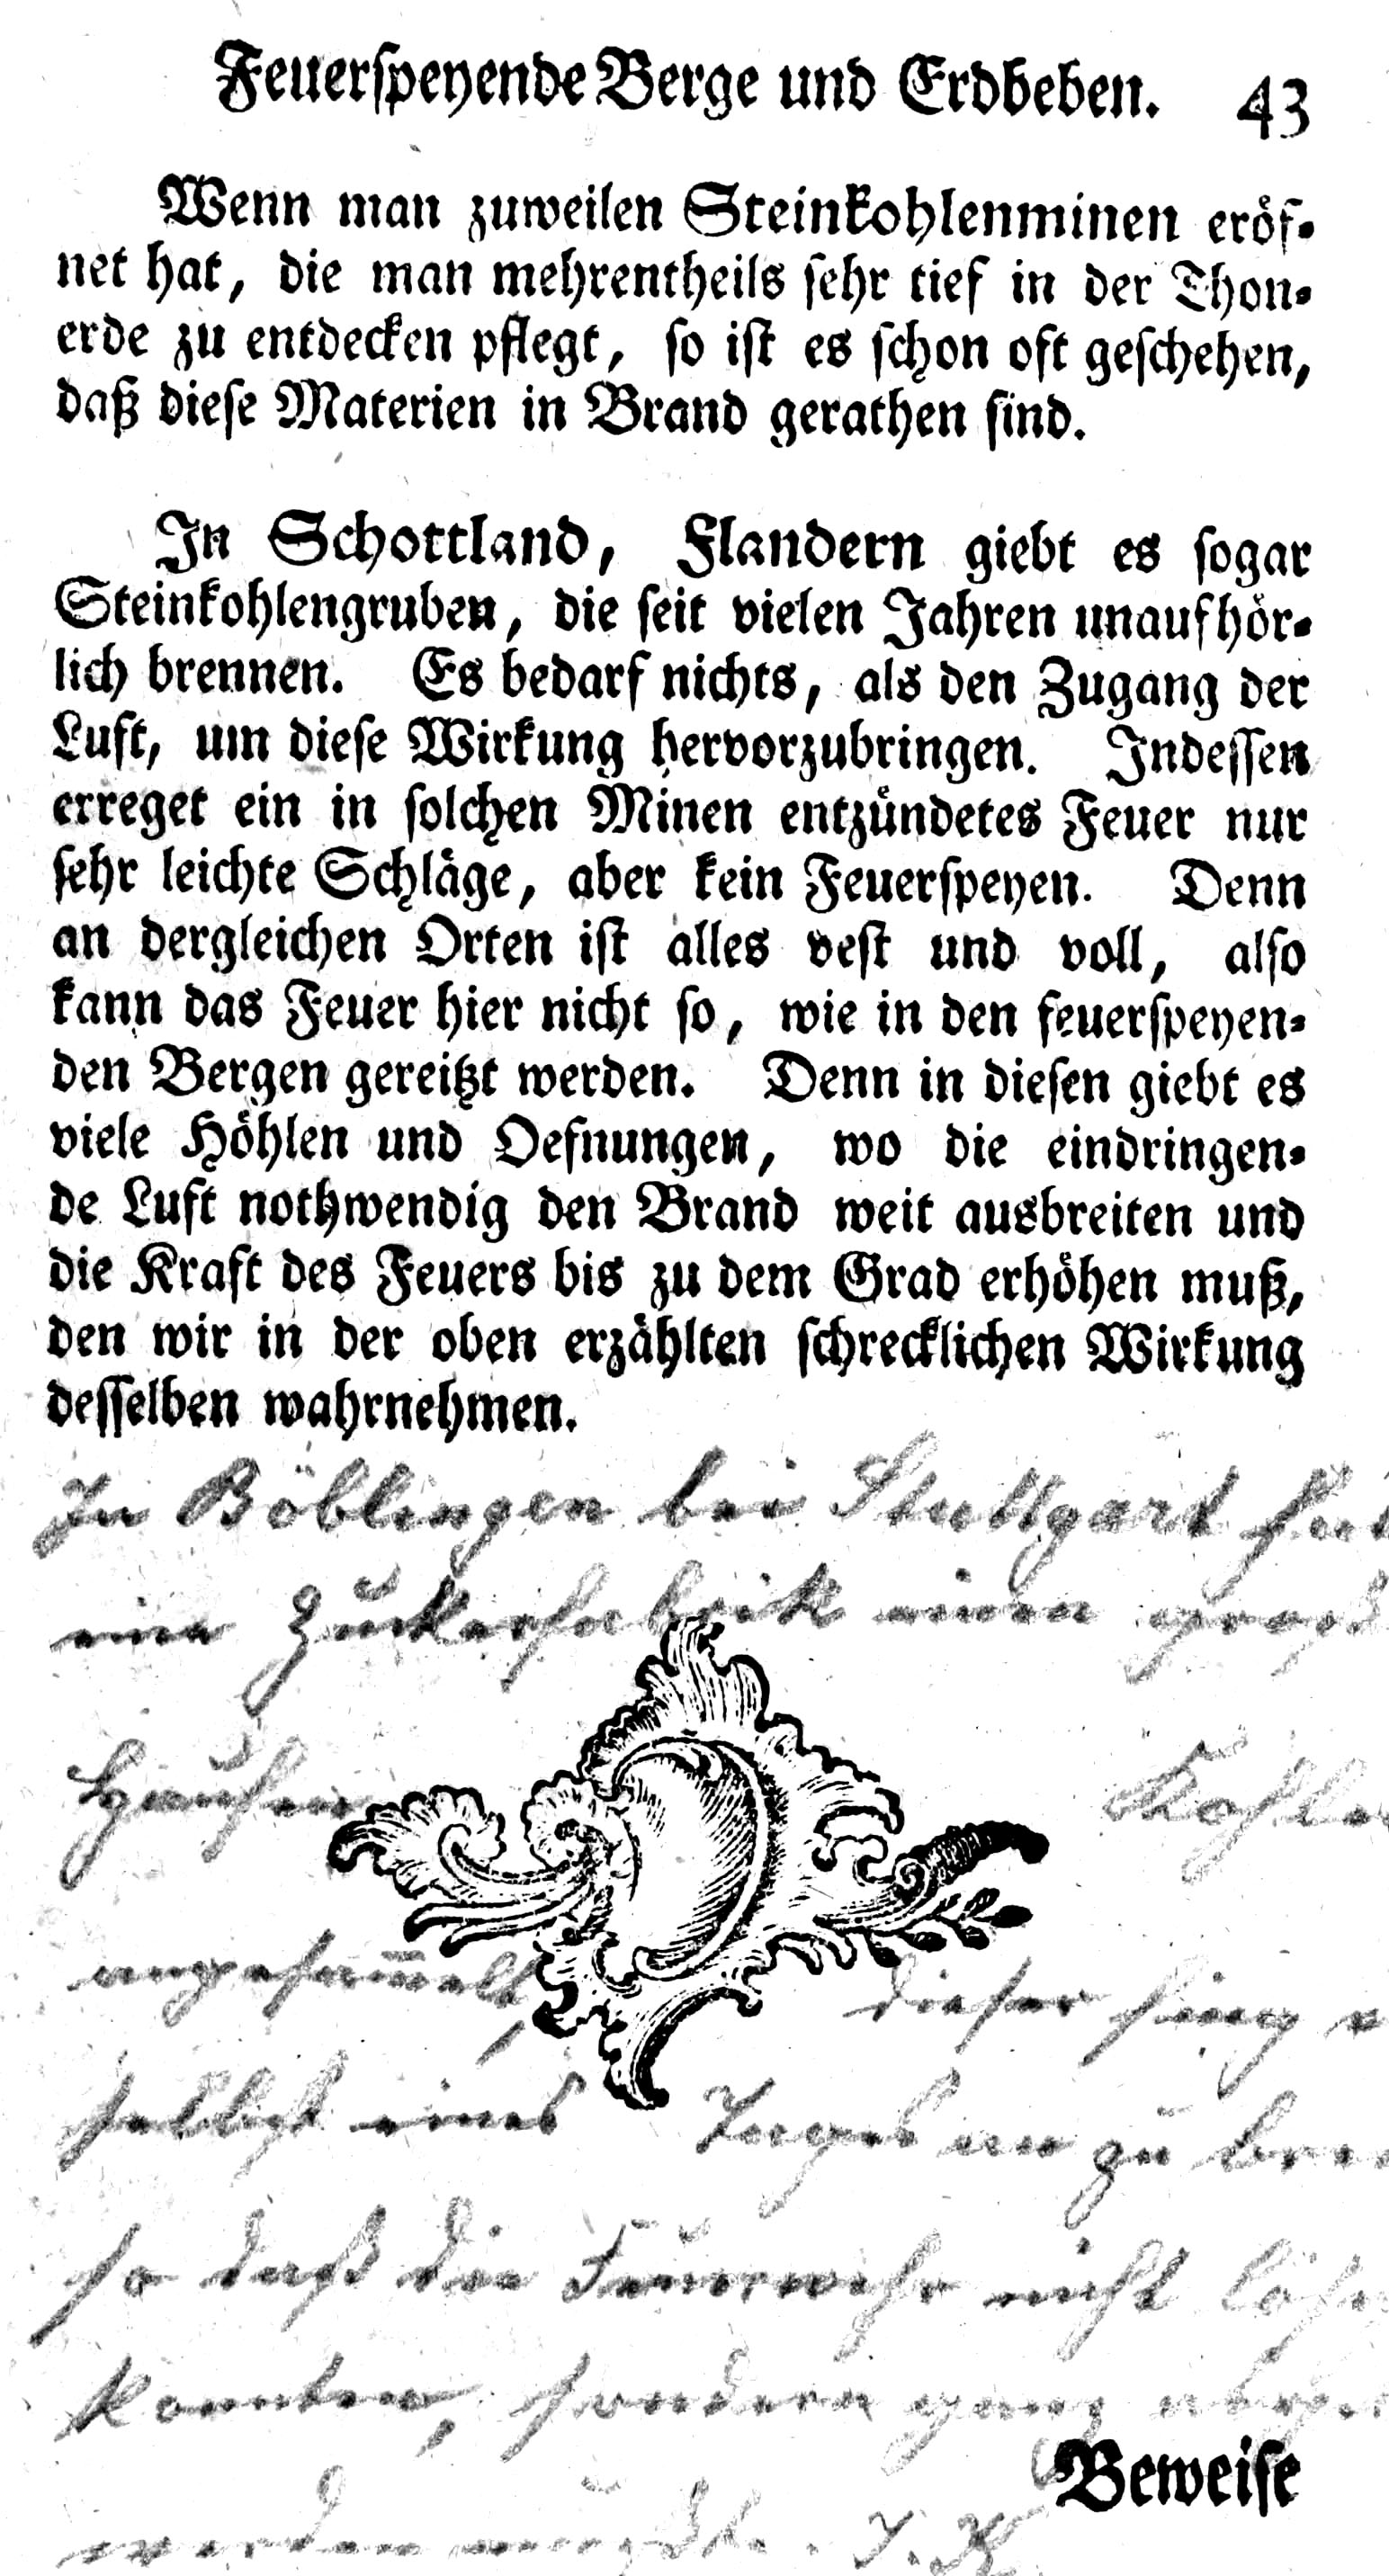 Feuerspeyende Berge und Erdbeben. 43
Wenn man zuweilen Steinkohlenminen eröf-
net hat, die man mehrentheils sehr tief in der Thon-
erde zu entdecken pflegt, so ist es schon oft geschehen,
daß diese Materien in Brand gerathen sind.
In Schottland, Flandern giebt es sogar
Steinkohlengruben, die seit vielen Jahren unaufhör-
lich brennen. Es bedarf nichts, als den Zugang der
Luft, um diese Wirkung hervorzubringen. Indessen
erreget ein in solchen Minen entzündetes Feuer nur
sehr leichte Schläge, aber kein Feuerspeyen. Denn
an dergleichen Orten ist alles vest und voll, also
kann das Feuer hier nicht so, wie in den feuerspeyen-
den Bergen gereitzt werden. Denn in diesen giebt es
viele Höhlen und Oefnungen, wo die eindringen-
de Luft nothwendig den Brand weit ausbreiten und
die Kraft des Feuers bis zu dem Grad erhöhen muß,
den wir in der oben erzählten schrecklichen Wirkung
desselben wahrnehmen.
In Böblingen bei Stuttgart hat
eine Zuckerfabrik einen groß
Haufen Kohle
angesam̅elt, dieser fieng
selbst eines Tages an zu bren
so daß die Feuerwehr nicht lösc
konnten, sondern ganz
werden mußte. J. K.
Beweise